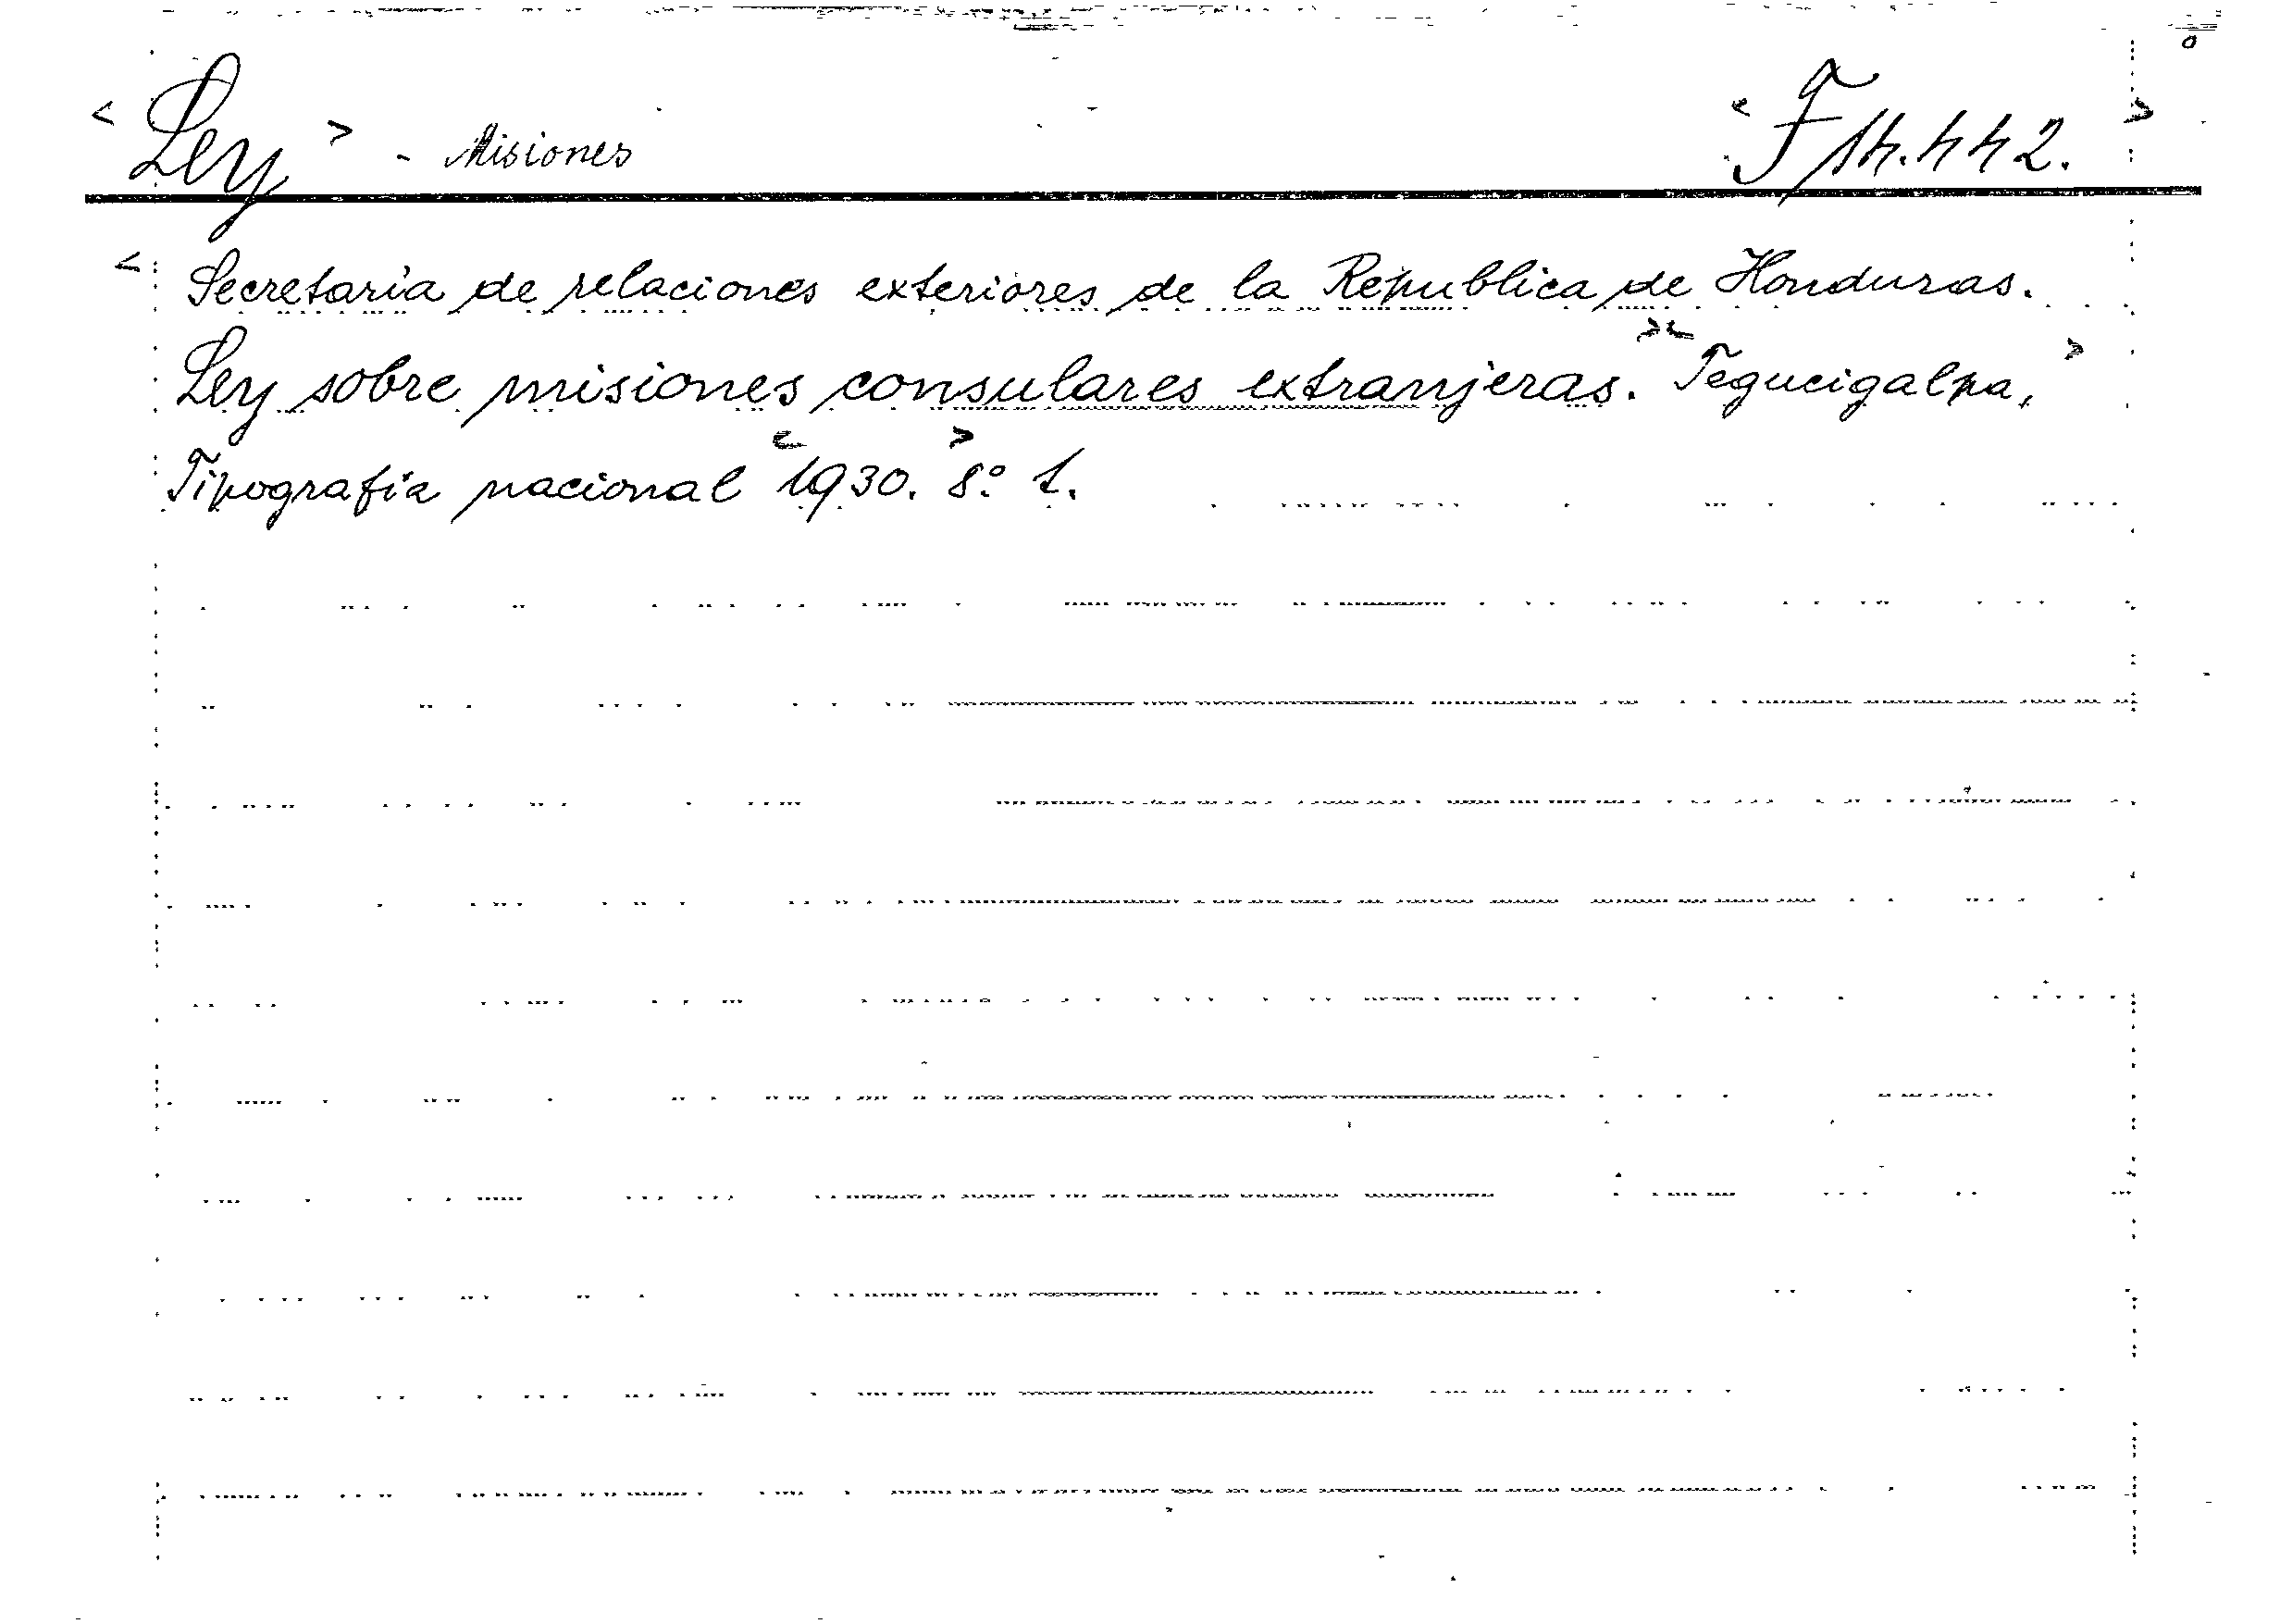 < Ley > - Misiones < F 14.442. >
< Secretaría de relaciones exteriores de la Republica de Honduras.
Ley sobre misiones consulares extranjeras. >< Tegucigalpa, >
Tipografía nacional < 1930. > 8º. 1.